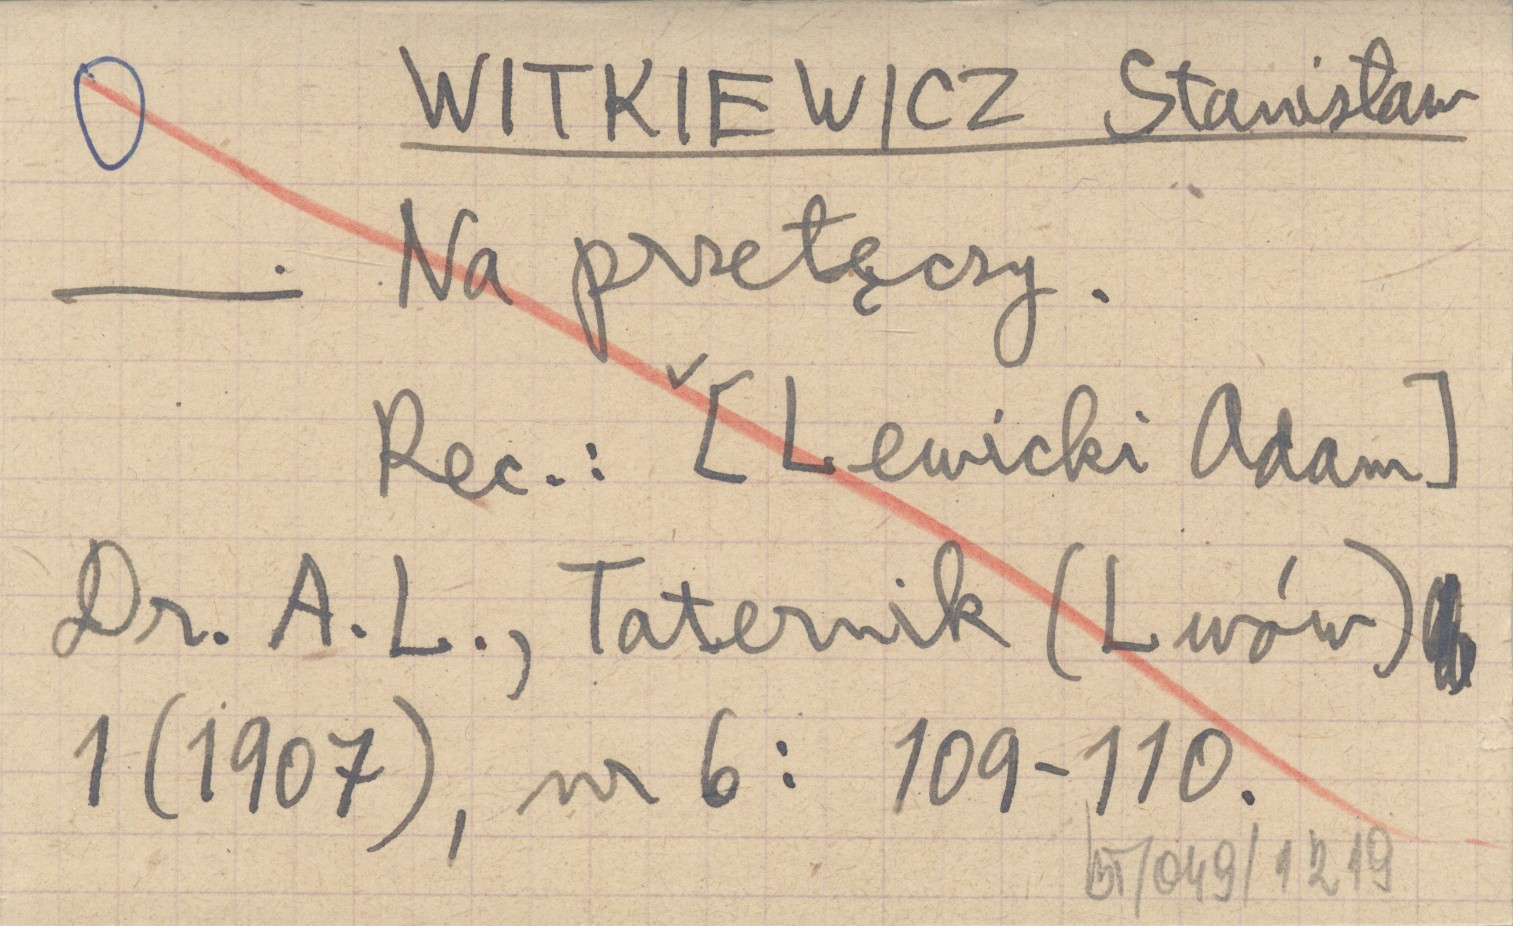 WITKIEWICZ Stanisław
——. Na przełęczy.
Rec.: [Lewicki Adam]
Dr. A.L., Taternik (Lwów)
1 (1907), nr 6: 109-110.
/049/1219